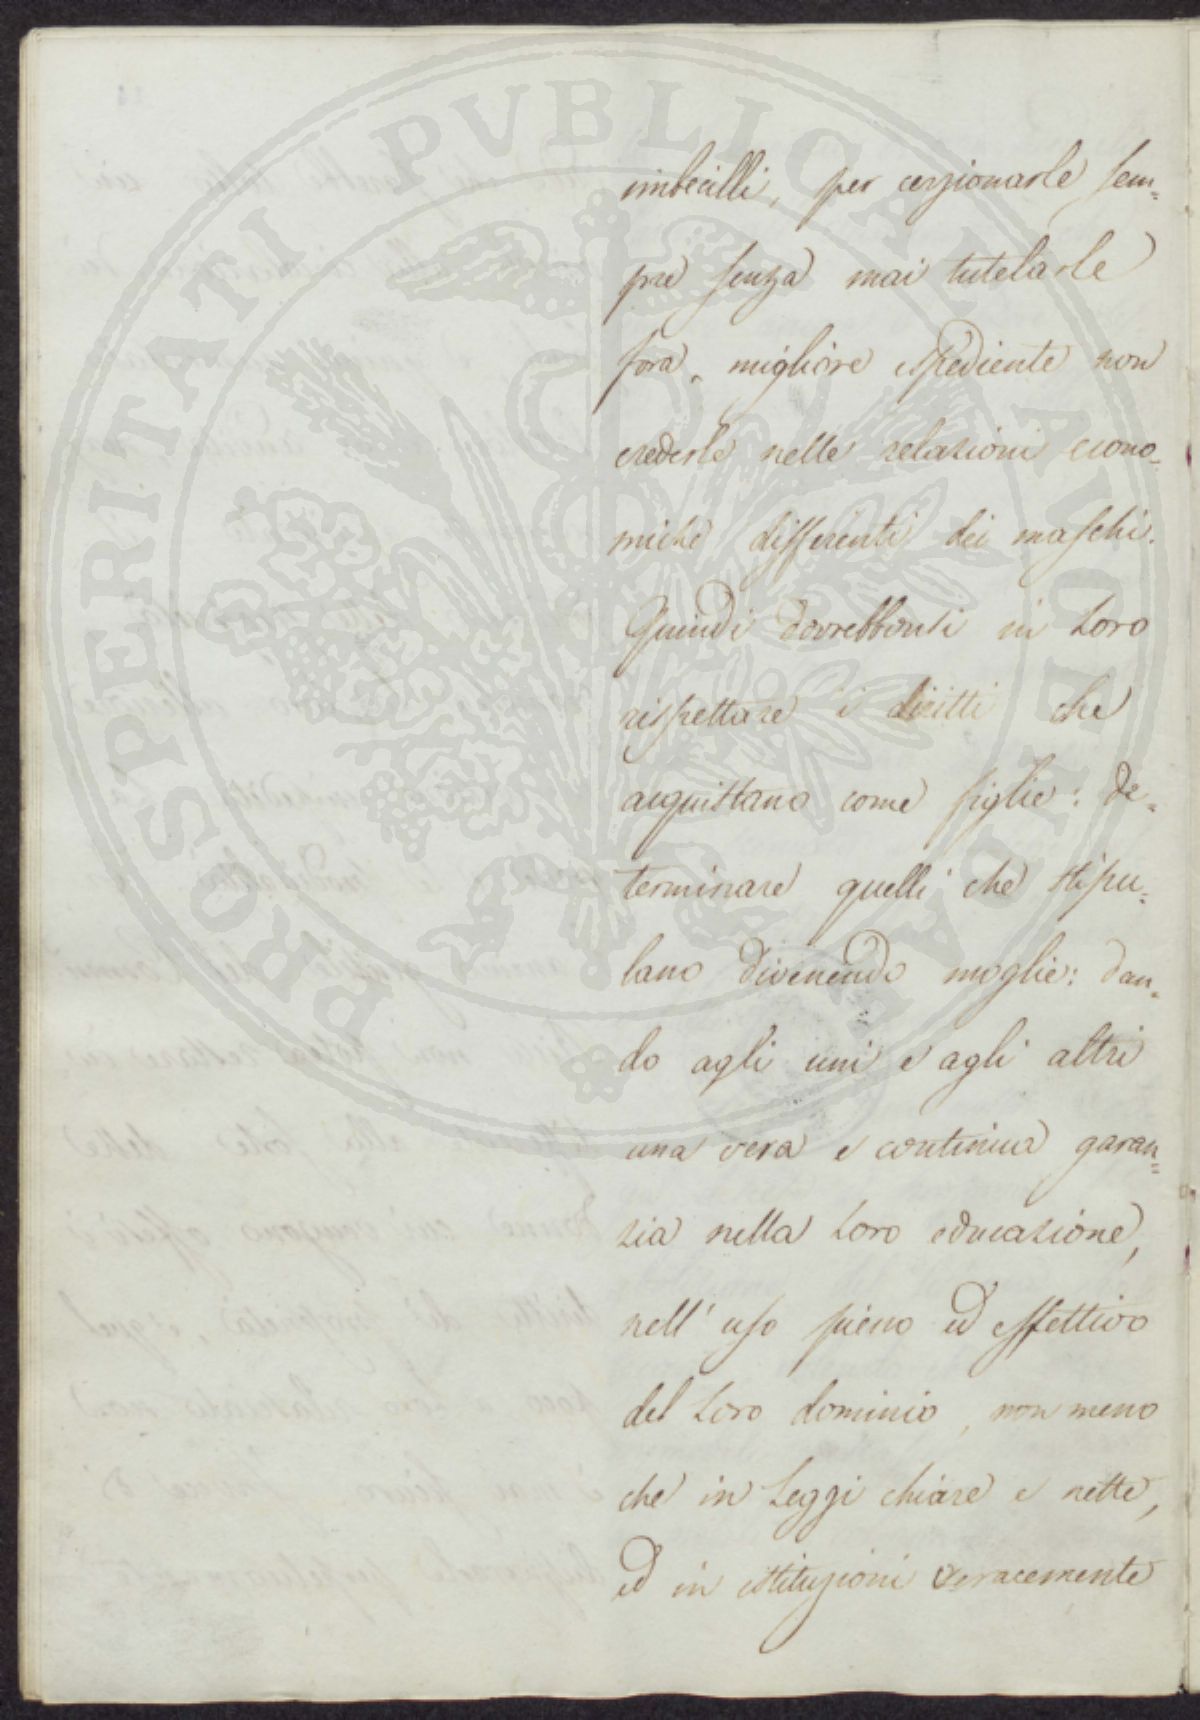 PROSPERITATI PUBLICAE AUGENDAE
imbecilli, per cerzionarle sem=
pre senza mai tutelarle
fora, migliore espediente non
crederle nelle relazioni econo=
miche differenti dei maschi.
Quindi dovrebbonsi in Loro
rispettare i diritti che
acquistano come figlie: de=
terminare quelli che stipu=
lano divenendo moglie: dan=
do agli uni e agli altri
una vera e continua garan=
zia nella Loro educazione,
nell'uso pieno ed effettivo
del Loro dominio, non meno
che in Leggi chiare e nette,
ed in istituzioni veracemente